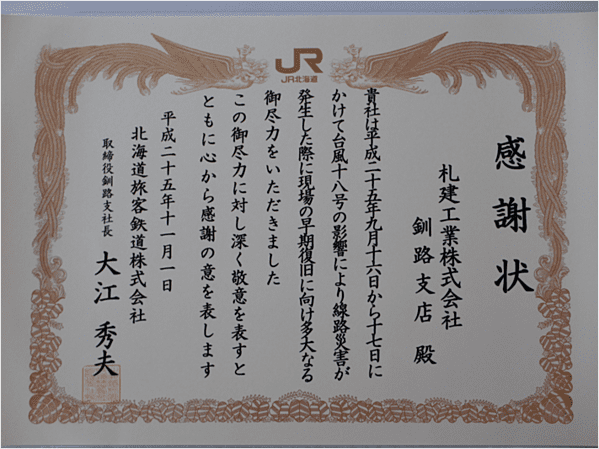 JR
JR北海道
感謝状
札建工業株式会社
釧路支店 殿
貴社は平成二十五年九月十六日から十七日に
かけて台風十八号の影響により線路災害が
発生した際に現場の早期復旧に向け多大なる
御尽力をいただきました
この御尽力に対し深く敬意を表すと
ともに心から感謝の意を表します
平成二十五年十一月一日
北海道旅客鉄道株式会社
取締役釧路支社長 大江 秀夫